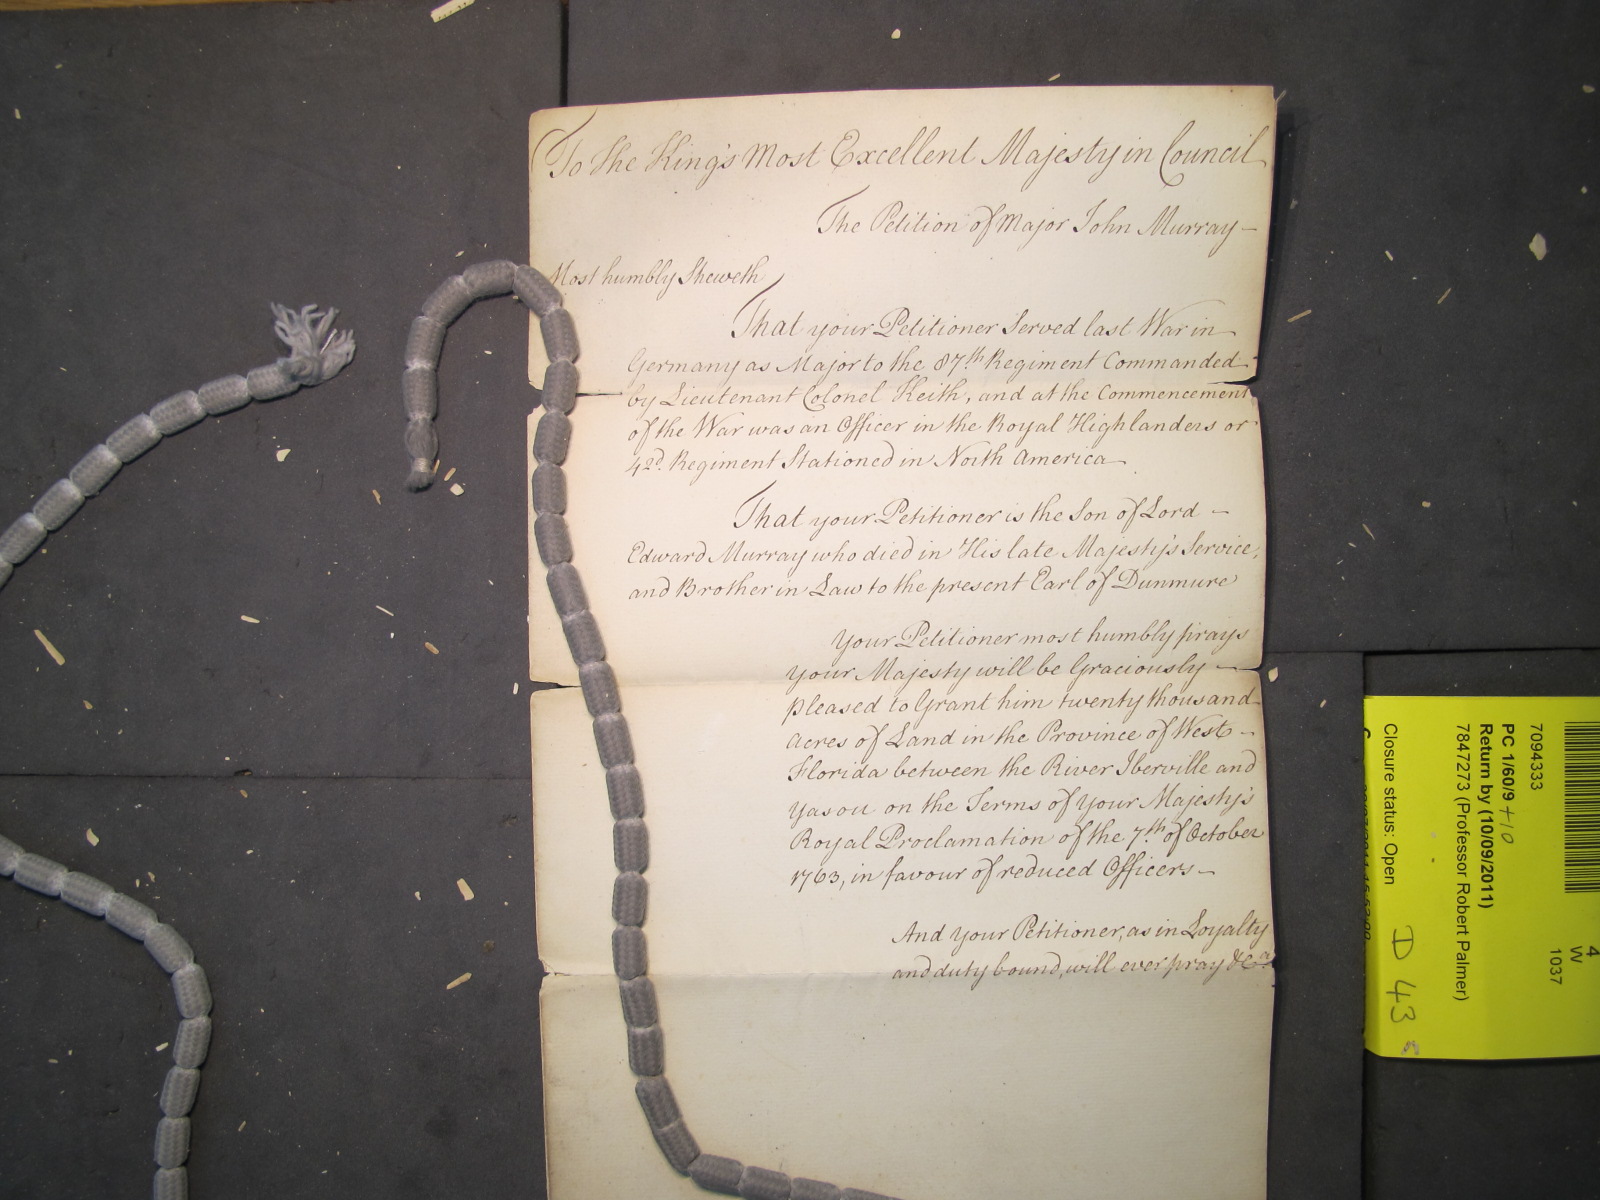 To the King's Most Excellent Majesty in Council
The Petition of Major John Murray —
Most humbly Sheweth
That your Petitioner Served last War in
Germany as Major to the 87th Regiment Commanded
by Lieutenant Colonel Keith, and at the Commencement
of the War was an Officer in the Royal Highlanders or
42d. Regiment Stationed in North America
That your Petitioner is the Son of Lord —
Edward Murray who died in His late Majesty's Service,
and Brother in Law to the present Earl of Dunmure
Your Petitioner most humbly prays
your Majesty will be Graciously —
pleased to Grant him twenty thousand
Acres of Land in the Province of West —
Florida between the River Iberville and
Yasou on the Terms of your Majesty's
Royal Proclamation of the 7th of October
1763, in favour of reduced Officers —
And your Petitioner, as in Loyalty
and duty bound, will ever pray &ca.
7094333
PC 1/60/9 +10
Return by (10/09/2011)
7847273 (Professor Robert Palmer)
Closure status: Open
D 43
4
W
1037